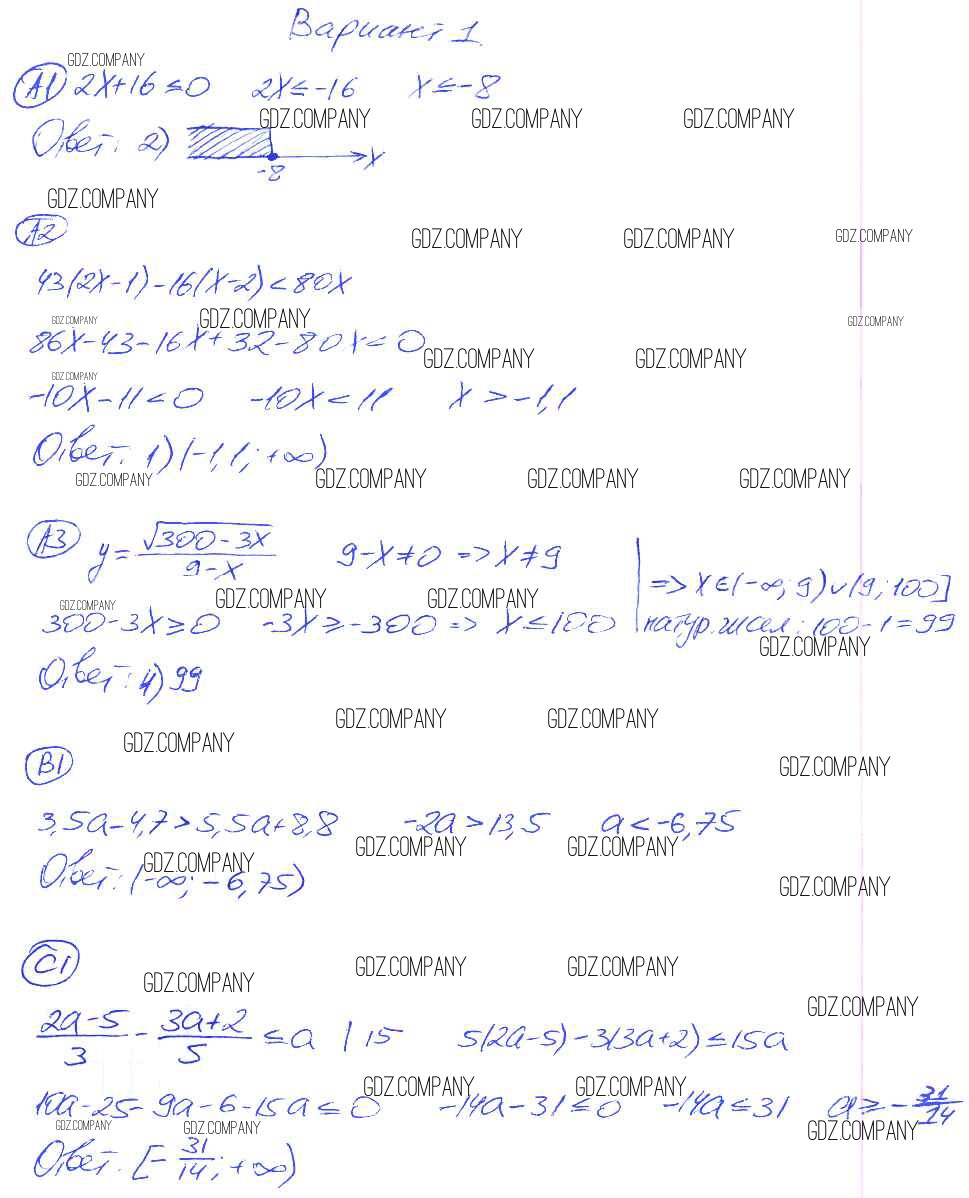 Вариант 1.
GDZ.COMPANY
А1 2x+16≤0 2x≤-16 x≤-8
GDZ.COMPANY GDZ.COMPANY GDZ.COMPANY
Ответ: 2) -8 x
GDZ.COMPANY
А2
GDZ.COMPANY GDZ.COMPANY GDZ.COMPANY
43(2x-1)-16(x-2)<80x
GDZ.COMPANY GDZ.COMPANY GDZ.COMPANY
86x-43-16x+32-80x<0
GDZ.COMPANY GDZ.COMPANY
GDZ.COMPANY
-10x-11<0 -10x<11 x>-1,1
Ответ: 1) (-1,1; +∞)
GDZ.COMPANY GDZ.COMPANY GDZ.COMPANY GDZ.COMPANY
А3 y=√(300-3x)/(9-x) 9-x≠0 => x≠9 | => x∈(-∞; 9)∪(9; 100]
GDZ.COMPANY GDZ.COMPANY GDZ.COMPANY
300-3x≥0 -3x≥-300 => x≤100 | натур. чисел: 100-1=99
GDZ.COMPANY
Ответ: 4) 99
GDZ.COMPANY GDZ.COMPANY
GDZ.COMPANY
В1
GDZ.COMPANY
3,5a-4,7>5,5a+8,8 -2a>13,5 a<-6,75
GDZ.COMPANY GDZ.COMPANY GDZ.COMPANY
Ответ: (-∞; -6,75)
GDZ.COMPANY
С1
GDZ.COMPANY GDZ.COMPANY GDZ.COMPANY
GDZ.COMPANY
(2a-5)/3 - (3a+2)/5 ≤ a | 15 5(2a-5)-3(3a+2)≤15a
GDZ.COMPANY GDZ.COMPANY
10a-25-9a-6-15a≤0 -14a-31≤0 -14a≤31 a≥-31/14
GDZ.COMPANY GDZ.COMPANY GDZ.COMPANY
Ответ: [-31/14; +∞)